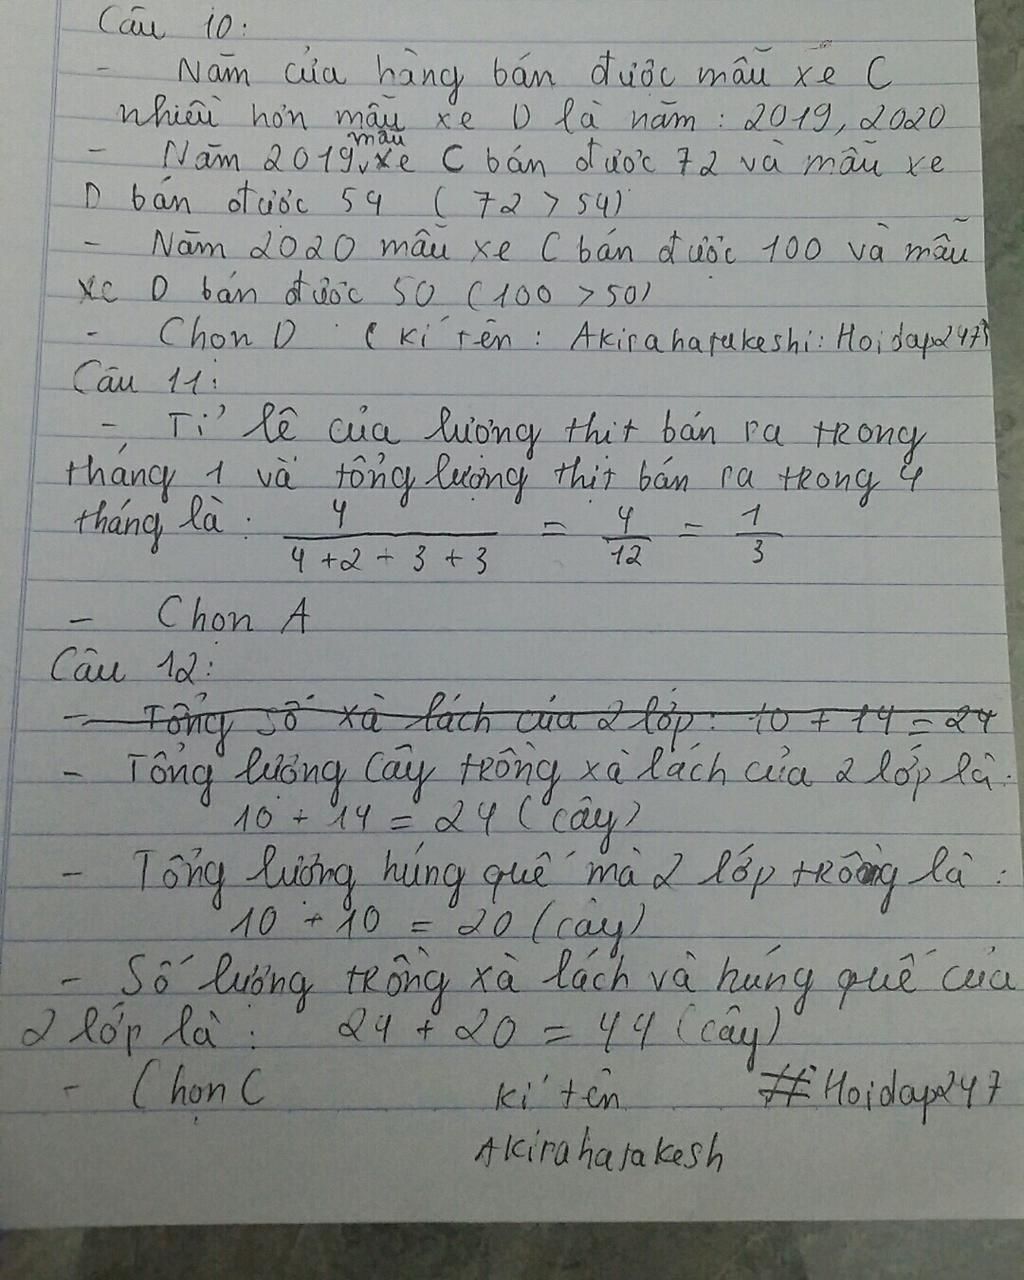 Câu 10:
- Năm cửa hàng bán được mẫu xe C
nhiều hơn mẫu xe D là năm: 2019, 2020
- Năm 2019, mẫu xe C bán được 72 và mẫu xe
D bán được 54 (72 > 54)
- Năm 2020 mẫu xe C bán được 100 và mẫu
xe D bán được 50 (100 > 50)
- Chọn D (kí tên: Akiraharakeshi: Hoidap247)
Câu 11:
- Tỉ lệ của lượng thịt bán ra trong
tháng 1 và tổng lượng thịt bán ra trong 4
tháng là: 4/(4+2+3+3) = 4/12 = 1/3
- Chọn A
Câu 12:
- Tổng số xà lách của 2 lớp: 10 + 14 = 24
- Tổng lượng cây trồng xà lách của 2 lớp là:
10 + 14 = 24 (cây)
- Tổng lượng húng quế mà 2 lớp trồng là:
10 + 10 = 20 (cây)
- Số lượng trồng xà lách và húng quế của
2 lớp là: 24 + 20 = 44 (cây)
- Chọn C kí tên #Hoidap247
Akiraharakesh